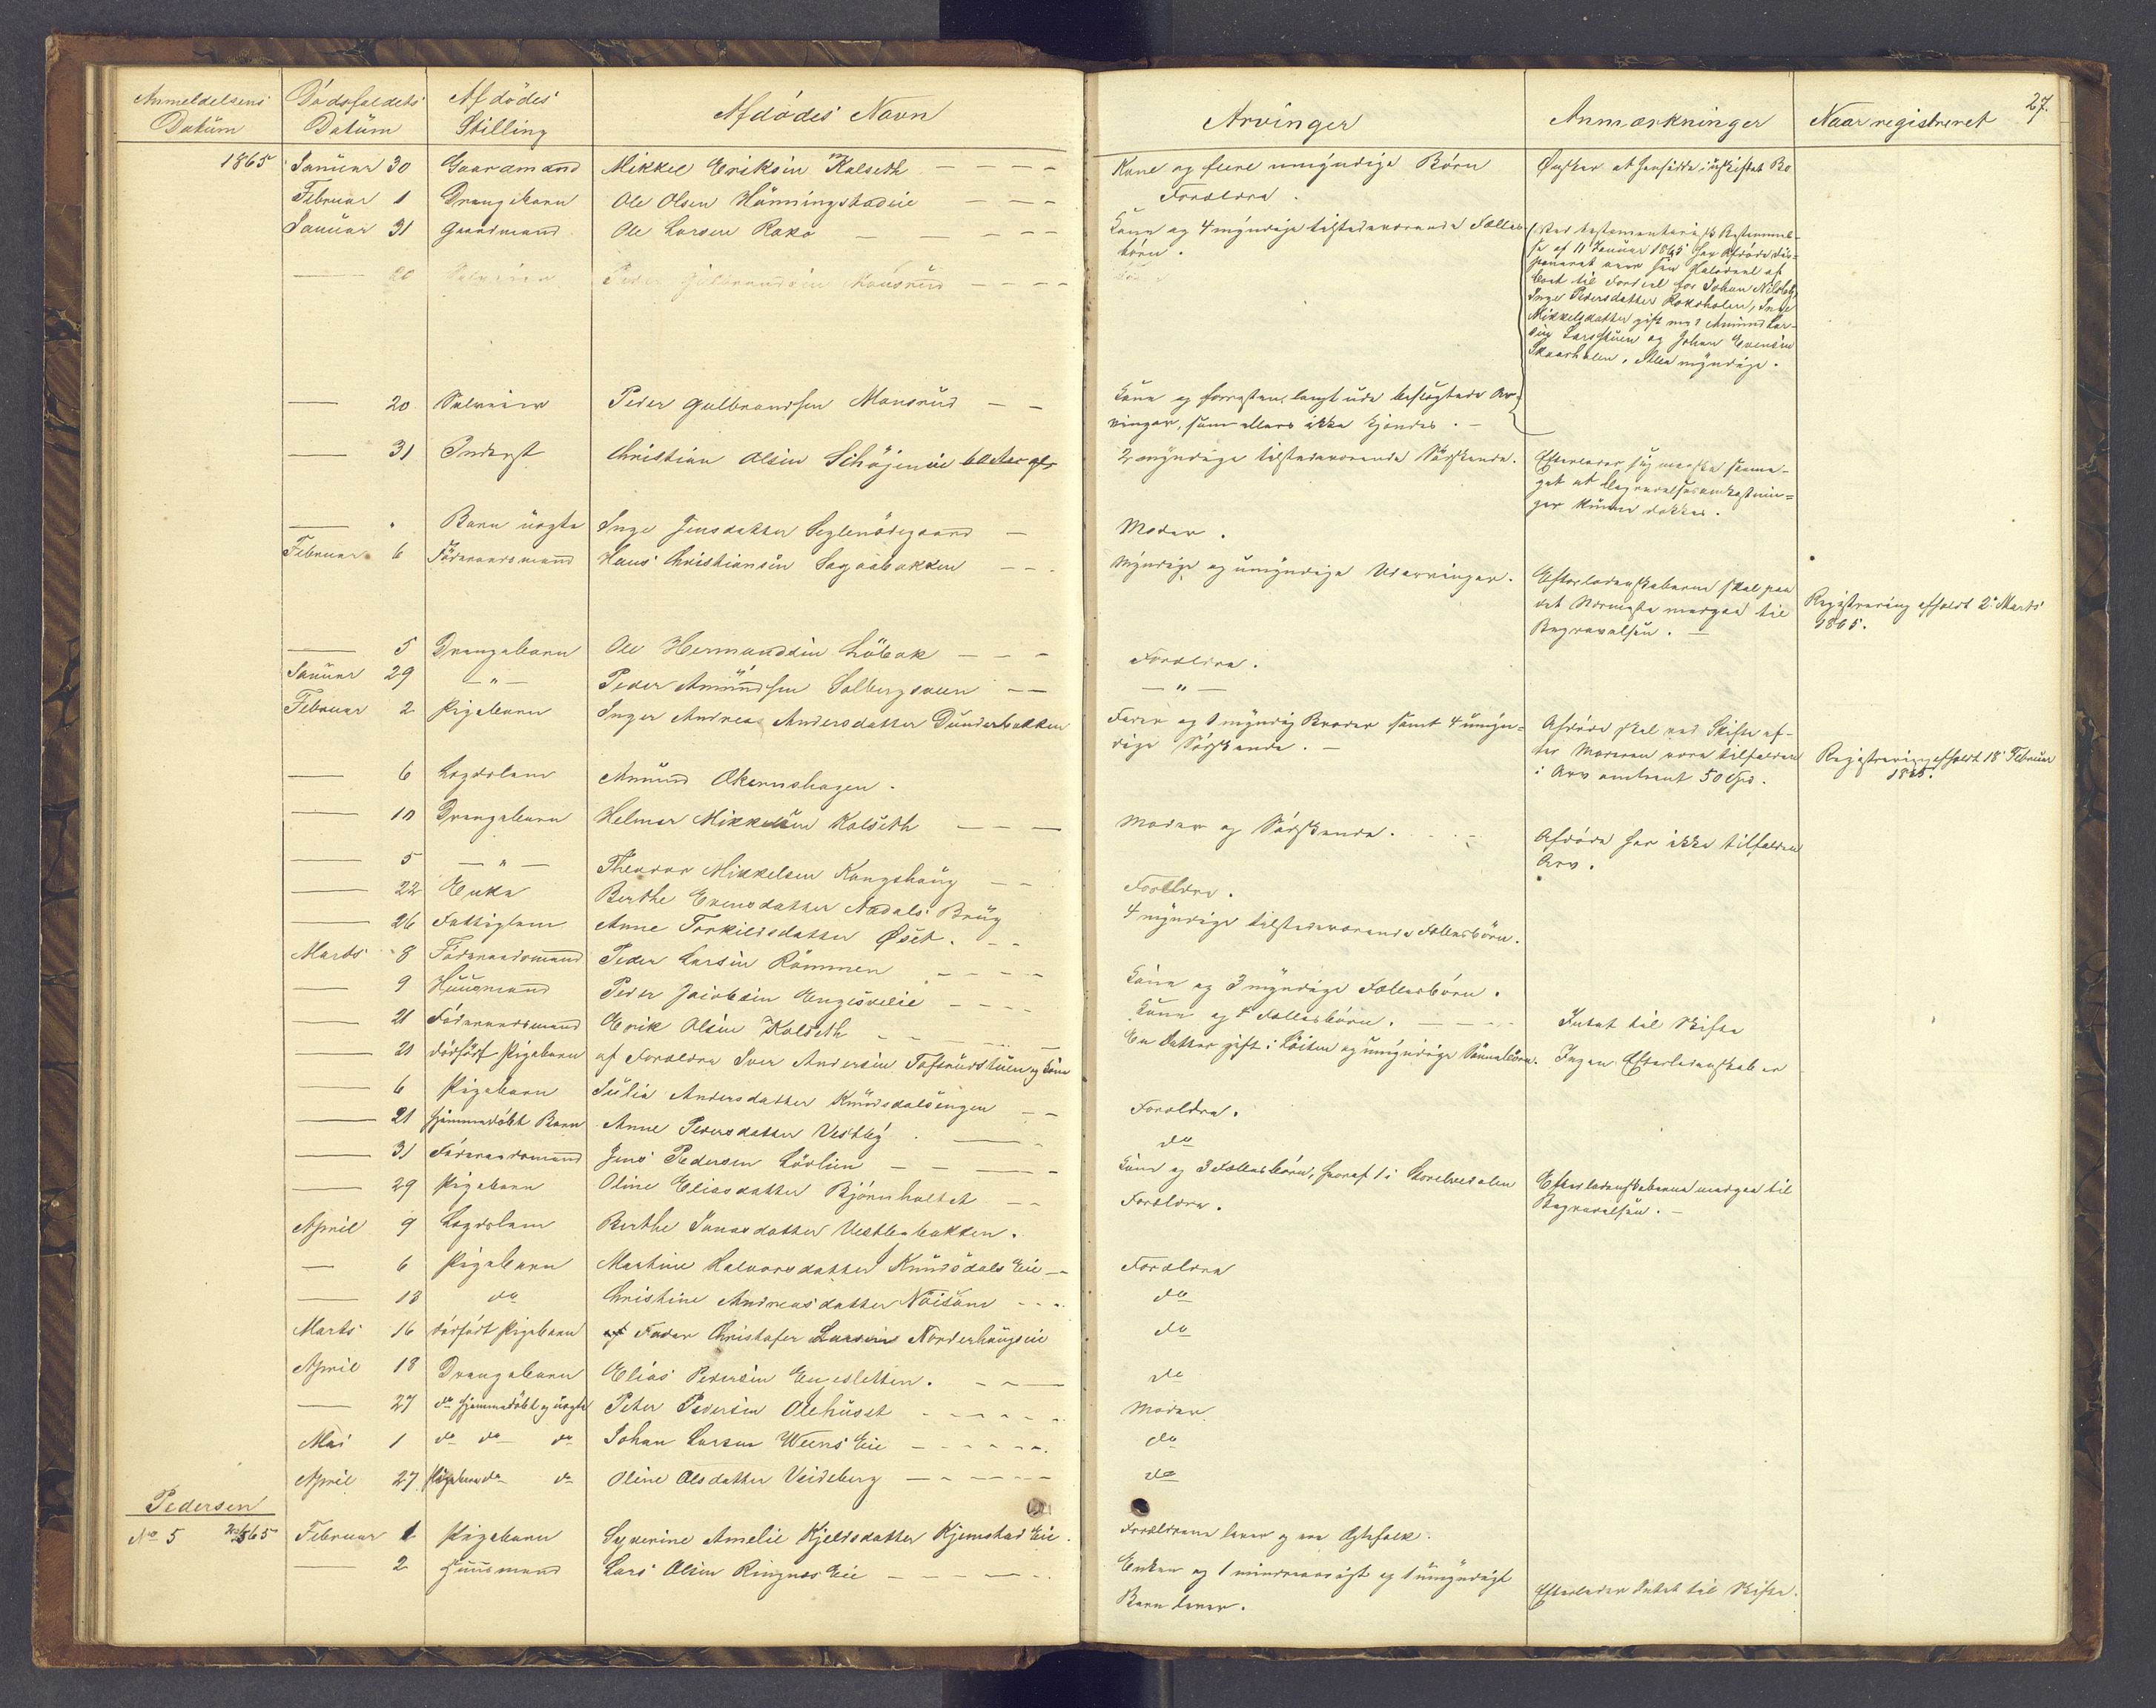 27.
Anmeldelsens Datum | Dødsfaldets Datum | Afdødes Stilling | Afdødes Navn | Arvinger | Anmærkninger | Naar registreret
1865 Januar 30 Gaardmand Mikkel Eriksen Kalseth Kone og flere umyndige Børn Ønsker at hensidde i uskiftet Bo
Februar 1 Drengebarn Ole Olsen Forældre.
Januar 31 Gaardmand Ole Larsen Roko Kone og 4 myndige tilstedeværende Fælles
børn.
Efter testamentarisk Bestemmel-
se af 11 Januar 1865 har Afdøde dis-
poneret over sin Halvdeel af
Boet til Fordeel for Johan Nilsen,
Inge Pedersdatter Rokoholen, Inge
Mikkelsdatter gift med Amund Lar-
sen og Johan Evensen
Skaarholen, Alle myndige.
20 Selveier Peder Gulbrandsen Monsrud
20 Selveier Peder Gulbrandsen Monsrud Kone og forresten langt ude beslægtede Ar-
vinger, som ellers ikke kjendes.
31 Inderst Christian Olsen 60 Aar gl 2 myndige tilstedeværende Søskende. Efterlader sig maaske saame-
get at Begravelsesomkostnin-
ger kunne dækkes.
" Barn uægte Inge Jensdatter Moder.
Februar 6 Føderaadsmand Hans Christiansen Sagaabakken Myndige og umyndige Udarvinger. Efterladenskaberne skal paa
det Nærmeste medgaa til
Begravelsen.
Registrering afholdt 2 Marts
1865.
5 Drengebarn Ole Hermandsen Løbak Forældre.
Januar 29 — " — Peder Amundsen Solbergsveen — " —
Februar 2 Pigebarn Inger Andrea Andersdatter Dunderbakken Fader og 1 myndig Broder samt 4 umyn-
dige Søskende.
Afdøde skal ved Skifte ef-
ter Moderen være tilfalden
i Arv omtrent 50 Spd.
Registrering afholdt 18 Februar
1865.
6 Lægdslem Amund Økernshagen.
10 Drengebarn Helmer Mikkelsen Kalseth Moder og Søskende. Afdøde har ikke tilfalden
Arv.
5 — " — Theodor Mikkelsen Kongshaug Forældre.
22 Enke Berthe Evensdatter Aadals Brug 4 myndige tilstedeværende Fællesbørn.
26 Fattiglem Anne Torkildsdatter Øset.
Marts 8 Føderaadsmand Peder Larsen Rømmen Kone og 3 myndige Fællesbørn.
9 Huusmand Peder Jacobsen Kone og 4 Fællesbørn. Intet til Skifte
21 Føderaadsmand Erik Olsen Kalseth En Datter gift i Løiten og umyndige Sønnebørn. Ingen Efterladenskaber
21 dødfødt Pigebarn af Forældre Iver Andersen og Kone
6 Pigebarn Julia Andersdatter Knudsdalsengen Forældre.
21 Hjemmedøbt Barn Anne Pedersdatter Vestby do
31 Føderaadsmand Jens Pedersen Lørlien Kone og 3 Fællesbørn, hvoraf 1 i Storelvedalen Efterladenskaberne medgaa til
Begravelsen.
29 Pigebarn Oline Eliasdatter Bjørnholtet Forældre.
April 9 Lægdslem Berthe Jonasdatter Vestbybakken.
6 Pigebarn Martine Halvorsdatter Knudsdals Eie Forældre
13 do Christine Andreasdatter do
Marts 16 dødfødt Pigebarn af Fader Christofer Larsen Norderhaugseie do
April 18 Drengebarn Elias Pedersen Engesletten. do
27 do hjemmedøbt og uægte Peter Pedersen Olehuset Moder.
Mai 1 do do do Johan Larsen Weens Eie do
April 27 Pigebarn do do Oline Olsdatter Veideberg do
Pedersen
No 5 1865 Februar 1 Pigebarn Syverine Amelie Kjeldsdatter Kjemstad Eie. Forældrene lever og ere Ægtefolk.
2 Huusmand Lars Olsen Ringnes Eie Enken og 1 mindreaarigt og 1 umyndigt
Barn lever.
Efterlader Intet til Skifte.